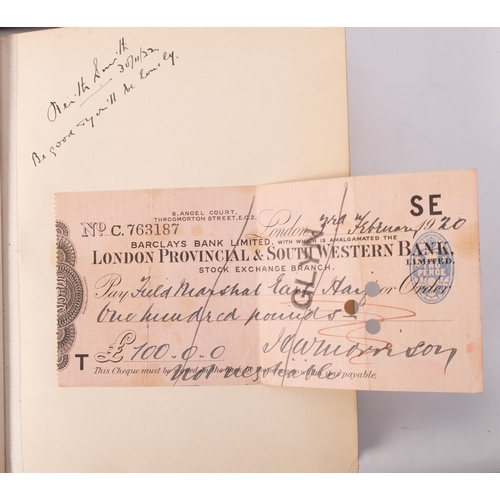 Keith Smith
30/11/22.
Be good & you'll be lonely.
8, ANGEL COURT,
THROGMORTON STREET, E.C.2.
SE
No C. 763187
London, 3rd February 1920
BARCLAYS BANK LIMITED, WITH WHICH IS AMALGAMATED THE
LONDON PROVINCIAL & SOUTH WESTERN BANK, LIMITED.
STOCK EXCHANGE BRANCH.
Pay Field Marshal Earl Haig or Order
One hundred pounds
T £ 100.0.0
This Cheque must be payable.
Not negotiable
PENCE